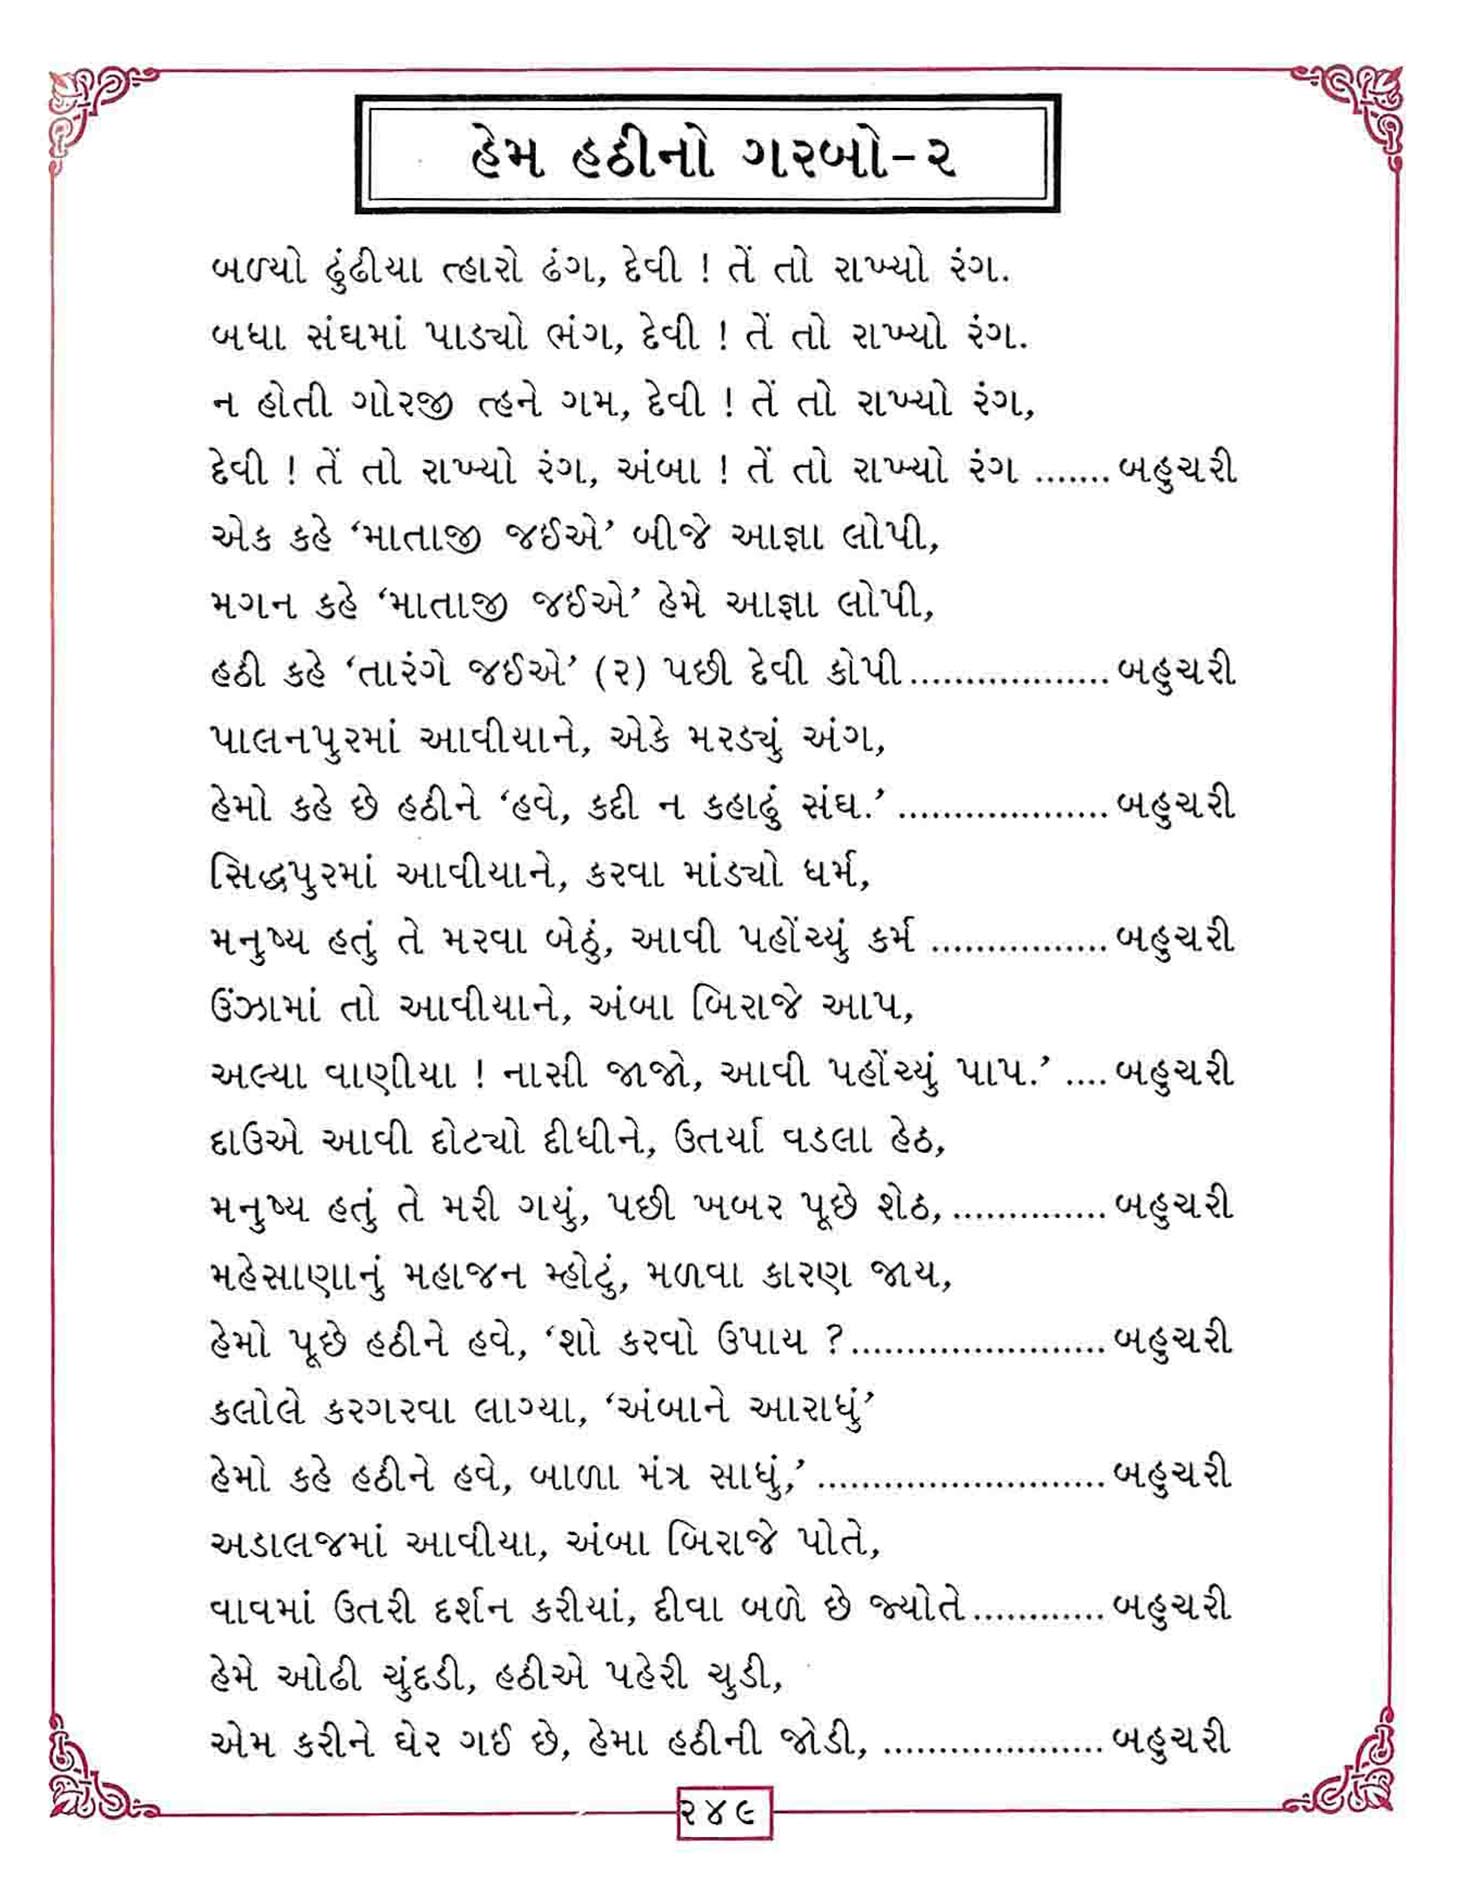 હેમ હઠીનો ગરબો-૨
બળ્યો ઢુંઢીયા ત્હારો ઢંગ, દેવી ! તેં તો રાખ્યો રંગ.
બધા સંઘમાં પાડ્યો ભંગ, દેવી ! તેં તો રાખ્યો રંગ.
ન હોતી ગોરજી ત્હને ગમ, દેવી ! તેં તો રાખ્યો રંગ,
દેવી ! તેં તો રાખ્યો રંગ, અંબા ! તેં તો રાખ્યો રંગ ....... બહુચરી
એક કહે ‘માતાજી જઈએ’ બીજે આજ્ઞા લોપી,
મગન કહે ‘માતાજી જઈએ’ હેમે આજ્ઞા લોપી,
હઠી કહે ‘તારંગે જઈએ’ (૨) પછી દેવી કોપી.................. બહુચરી
પાલનપુરમાં આવીયાને, એકે મરડ્યું અંગ,
હેમો કહે છે હઠીને ‘હવે, કદી ન કહાઢું સંઘ.’ ................... બહુચરી
સિદ્ધપુરમાં આવીયાને, કરવા માંડ્યો ધર્મ,
મનુષ્ય હતું તે મરવા બેઠું, આવી પહોંચ્યું કર્મ ................ બહુચરી
ઉંઝામાં તો આવીયાને, અંબા બિરાજે આપ,
અલ્યા વાણીયા ! નાસી જાજો, આવી પહોંચ્યું પાપ.’ .... બહુચરી
દાઉએ આવી દોટ્યો દીધીને, ઉતર્યા વડલા હેઠ,
મનુષ્ય હતું તે મરી ગયું, પછી ખબર પૂછે શેઠ, .............. બહુચરી
મહેસાણાનું મહાજન મ્હોટું, મળવા કારણ જાય,
હેમો પૂછે હઠીને હવે, ‘શો કરવો ઉપાય ?....................... બહુચરી
કલોલે કરગરવા લાગ્યા, ‘અંબાને આરાધું’
હેમો કહે હઠીને હવે, બાળા મંત્ર સાધું,’ .......................... બહુચરી
અડાલજમાં આવીયા, અંબા બિરાજે પોતે,
વાવમાં ઉતરી દર્શન કરીયાં, દીવા બળે છે જ્યોતે............ બહુચરી
હેમે ઓઢી ચુંદડી, હઠીએ પહેરી ચુડી,
એમ કરીને ઘેર ગઈ છે, હેમા હઠીની જોડી, .................... બહુચરી
૨૪૯